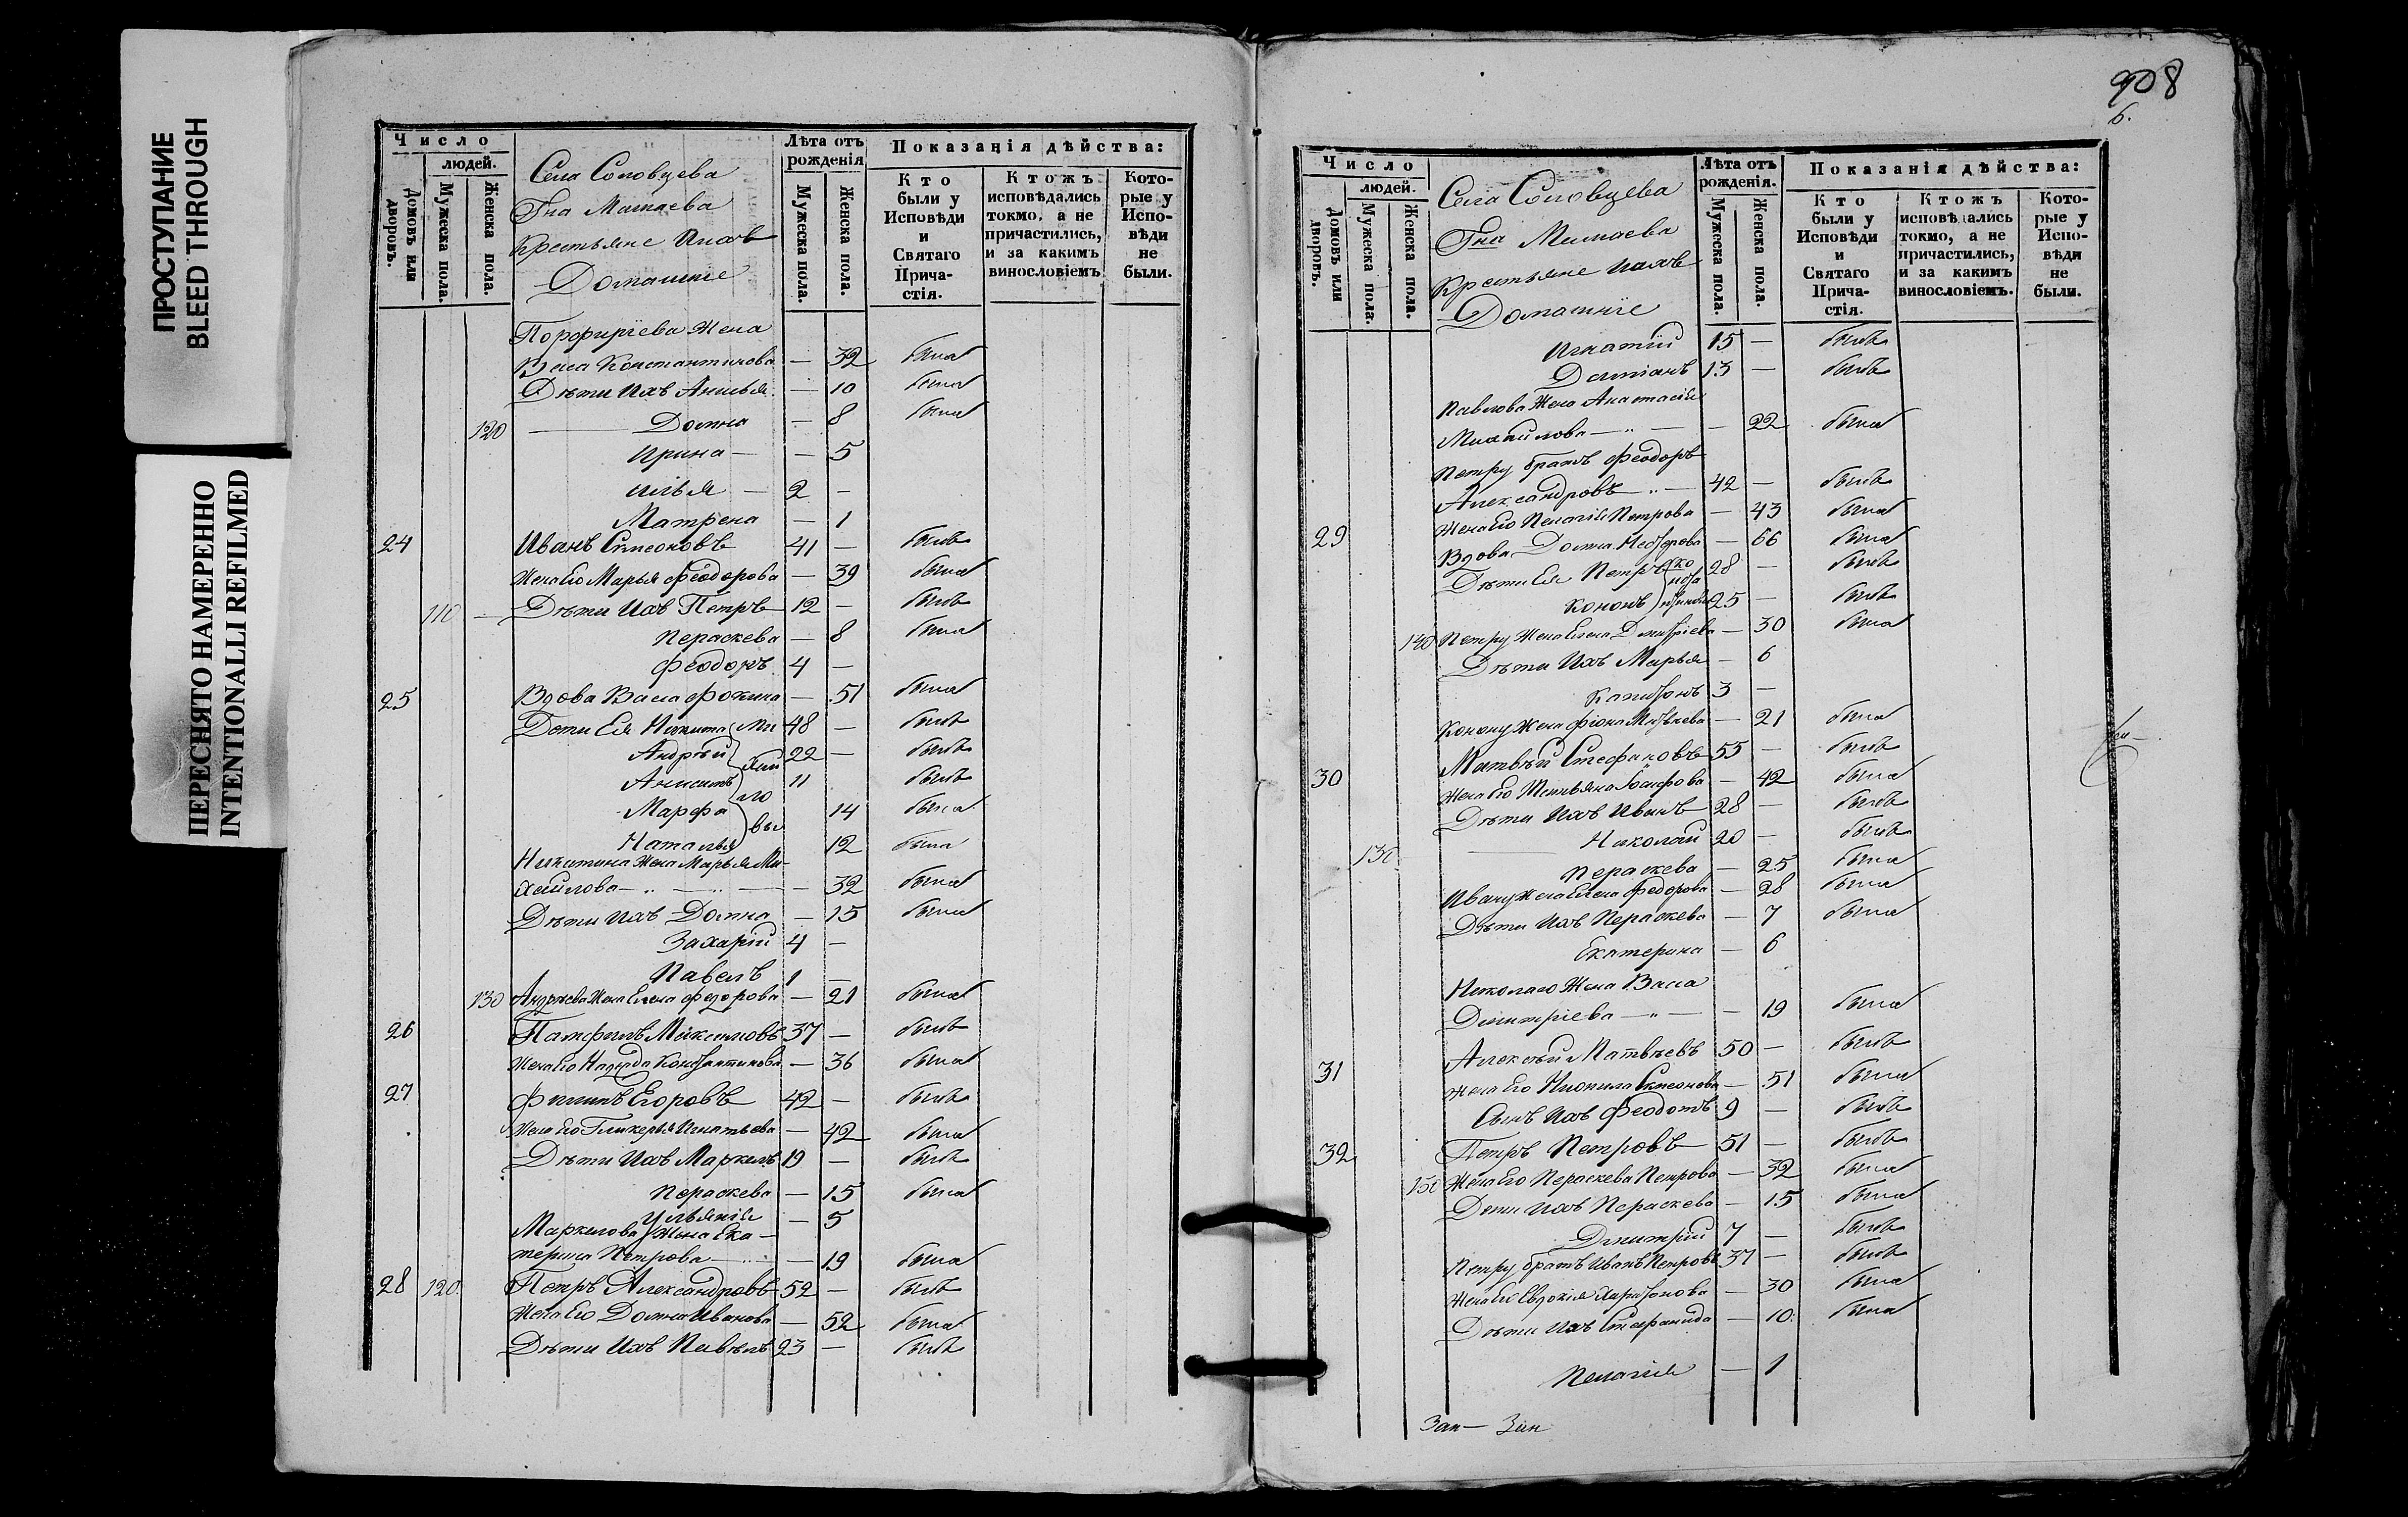 ПРОСТУПАНИЕ
BLEED THROUGH
ПЕРЕСНЯТО НАМЕРЕННО
INTENTIONALLI REFILMED
Число
людей.
Домовъ или дворовъ.
Мужеска пола.
Женска пола.
Села Соловцева
Гна Матаева
Крестьяне Ихъ
Домашніе
Лѣта отъ рожденія
Мужеска пола.
Женска пола.
Показанія дѣйства:
Кто были у Исповѣди и Святаго Прича-стія.
Ктожъ исповѣдались токмо, а не причастились, и за какимъ винословіемъ
Кото-рые у Испо-вѣди не были.
Порфиріева Жена
Васса Константинова — 32 была
Дѣти Ихъ Анисья — 10 была
120 Домна — 8 была
Ирина — 5
Илья 2 —
Матрена — 1
24 Иванъ Симеоновъ 41 — былъ
Жена Его Марья Феодорова — 39 была
110 Дѣти Ихъ Петръ 12 — былъ
Пераскева — 8 была
Феодоръ 4 —
25 Вдова Васса Фокина — 51 была
Дѣти Ея Никита Ми 48 — былъ
Андрей хай 22 — былъ
Анисимъ ло 11 былъ
Марфа 14 была
Наталья вы 12 была
Никитина Жена Марья Ми-
хайлова — 32 была
Дѣти Ихъ Домна — 15 была
Захарій 4 —
Павелъ 1 —
130 Андреева Жена Елена Федорова — 21 была
26 Памфилъ Максимовъ 37 — былъ
Жена Его Надежда Константинова — 36 была
27 Филипъ Егоровъ 42 — былъ
Жена Его Гликерья Игнатьева — 42 была
Дѣти Ихъ Маркелъ 19 — былъ
Пераскева — 15 была
Ульянія — 5
Маркелова Жена Ека-
терина Петрова — 19 была
28 120 Петръ Александровъ 52 — былъ
Жена Его Домна Иванова — 52 была
Дѣти Ихъ Павелъ 23 — былъ
908
6.
Число
людей.
Домовъ или дворовъ.
Мужеска пола.
Женска пола.
Села Соловцева
Гна Матаева
Крестьяне Ихъ
Домашніе
Лѣта отъ рожденія.
Мужеска пола.
Женска пола.
Показанія дѣйства:
Кто были у Исповѣди и Святаго Прича-стія.
Ктожъ исповѣдались токмо, а не причастились, и за какимъ винословіемъ.
Кото-рые у Испо-вѣди не были.
Игнатій 15 — былъ
Даміанъ 13 — былъ
Павлова Жена Анастасія
Михайлова — 22 была
Петру братъ Феодоръ
Александровъ 42 — былъ
Жена Его Пелагія Петрова — 43 была
29 Вдова Домна — 66 была
Дѣти Ея Петръ 28 — былъ
Кононъ 25 — былъ
140 Петру Жена Елена Дмитріева — 30 была
Дѣти Ихъ Марья — 6
Капитонъ 3 —
Конону Жена Фіона Матвѣева — 21 была
30 Матвѣй Стефановъ 55 — былъ
Жена Его Татьяна Іосифова — 42 была
Дѣти Ихъ Иванъ 28 — былъ
130 Николай 20 — былъ
Пераскева — 25 была
Ивану Жена Елена Федорова — 28 была
Дѣти Ихъ Пераскева — 7 была
Екатерина — 6
Николаю Жена Васса
Димитріева — 19 была
31 Алексѣй Матвѣевъ 50 — былъ
Жена Его Симеонова — 51 была
Сынъ Ихъ Феодотъ 9 — былъ
32 Петръ Петровъ 51 — былъ
150 Жена Его Пераскева Петрова — 32 была
Дѣти Ихъ Пераскева — 15 была
Дмитрій 7 — былъ
Петру братъ Иванъ Петровъ 37 — былъ
Жена Его Евдокія Харитонова — 30 была
Дѣти Ихъ Стефанида — 10 была
Пелагія — 1